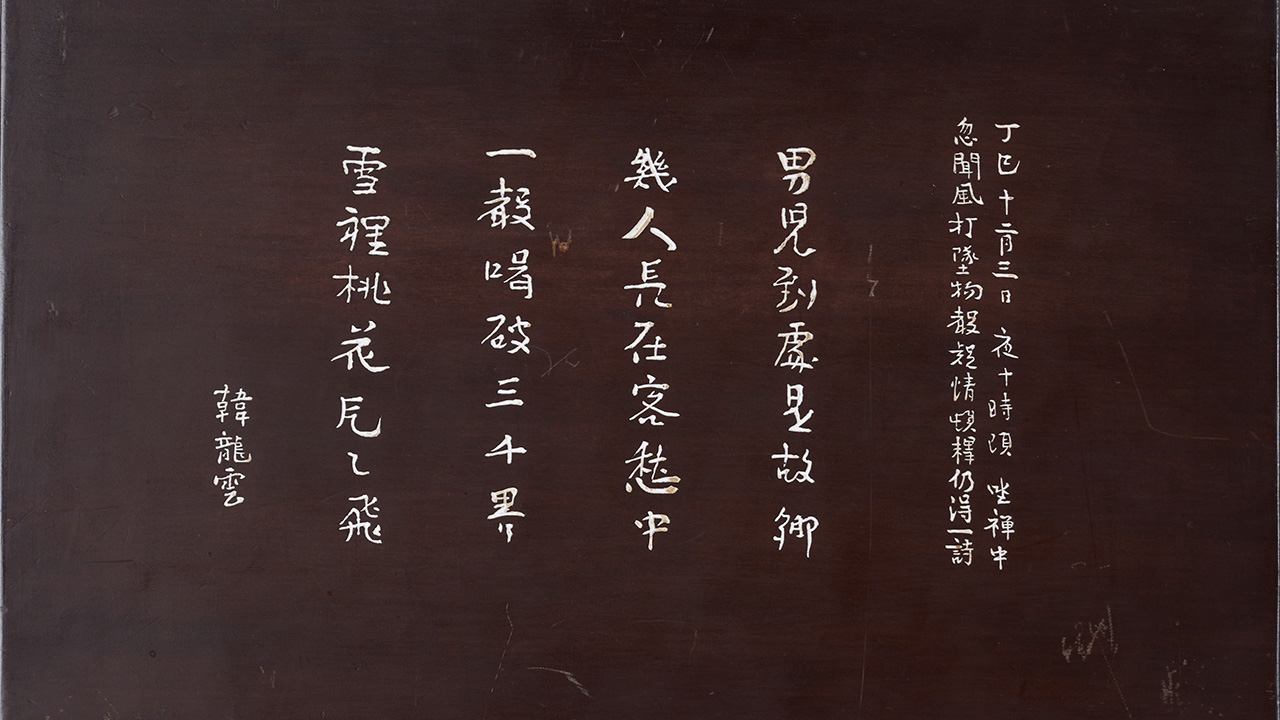 丁巳十二月三日 夜十時頃 坐禪中
忽聞風打墜物聲疑情頓釋仍得一詩
男児到處是故鄕
幾人長在客愁中
一聲喝破三千界
雪裡桃花片々飛
韓龍雲